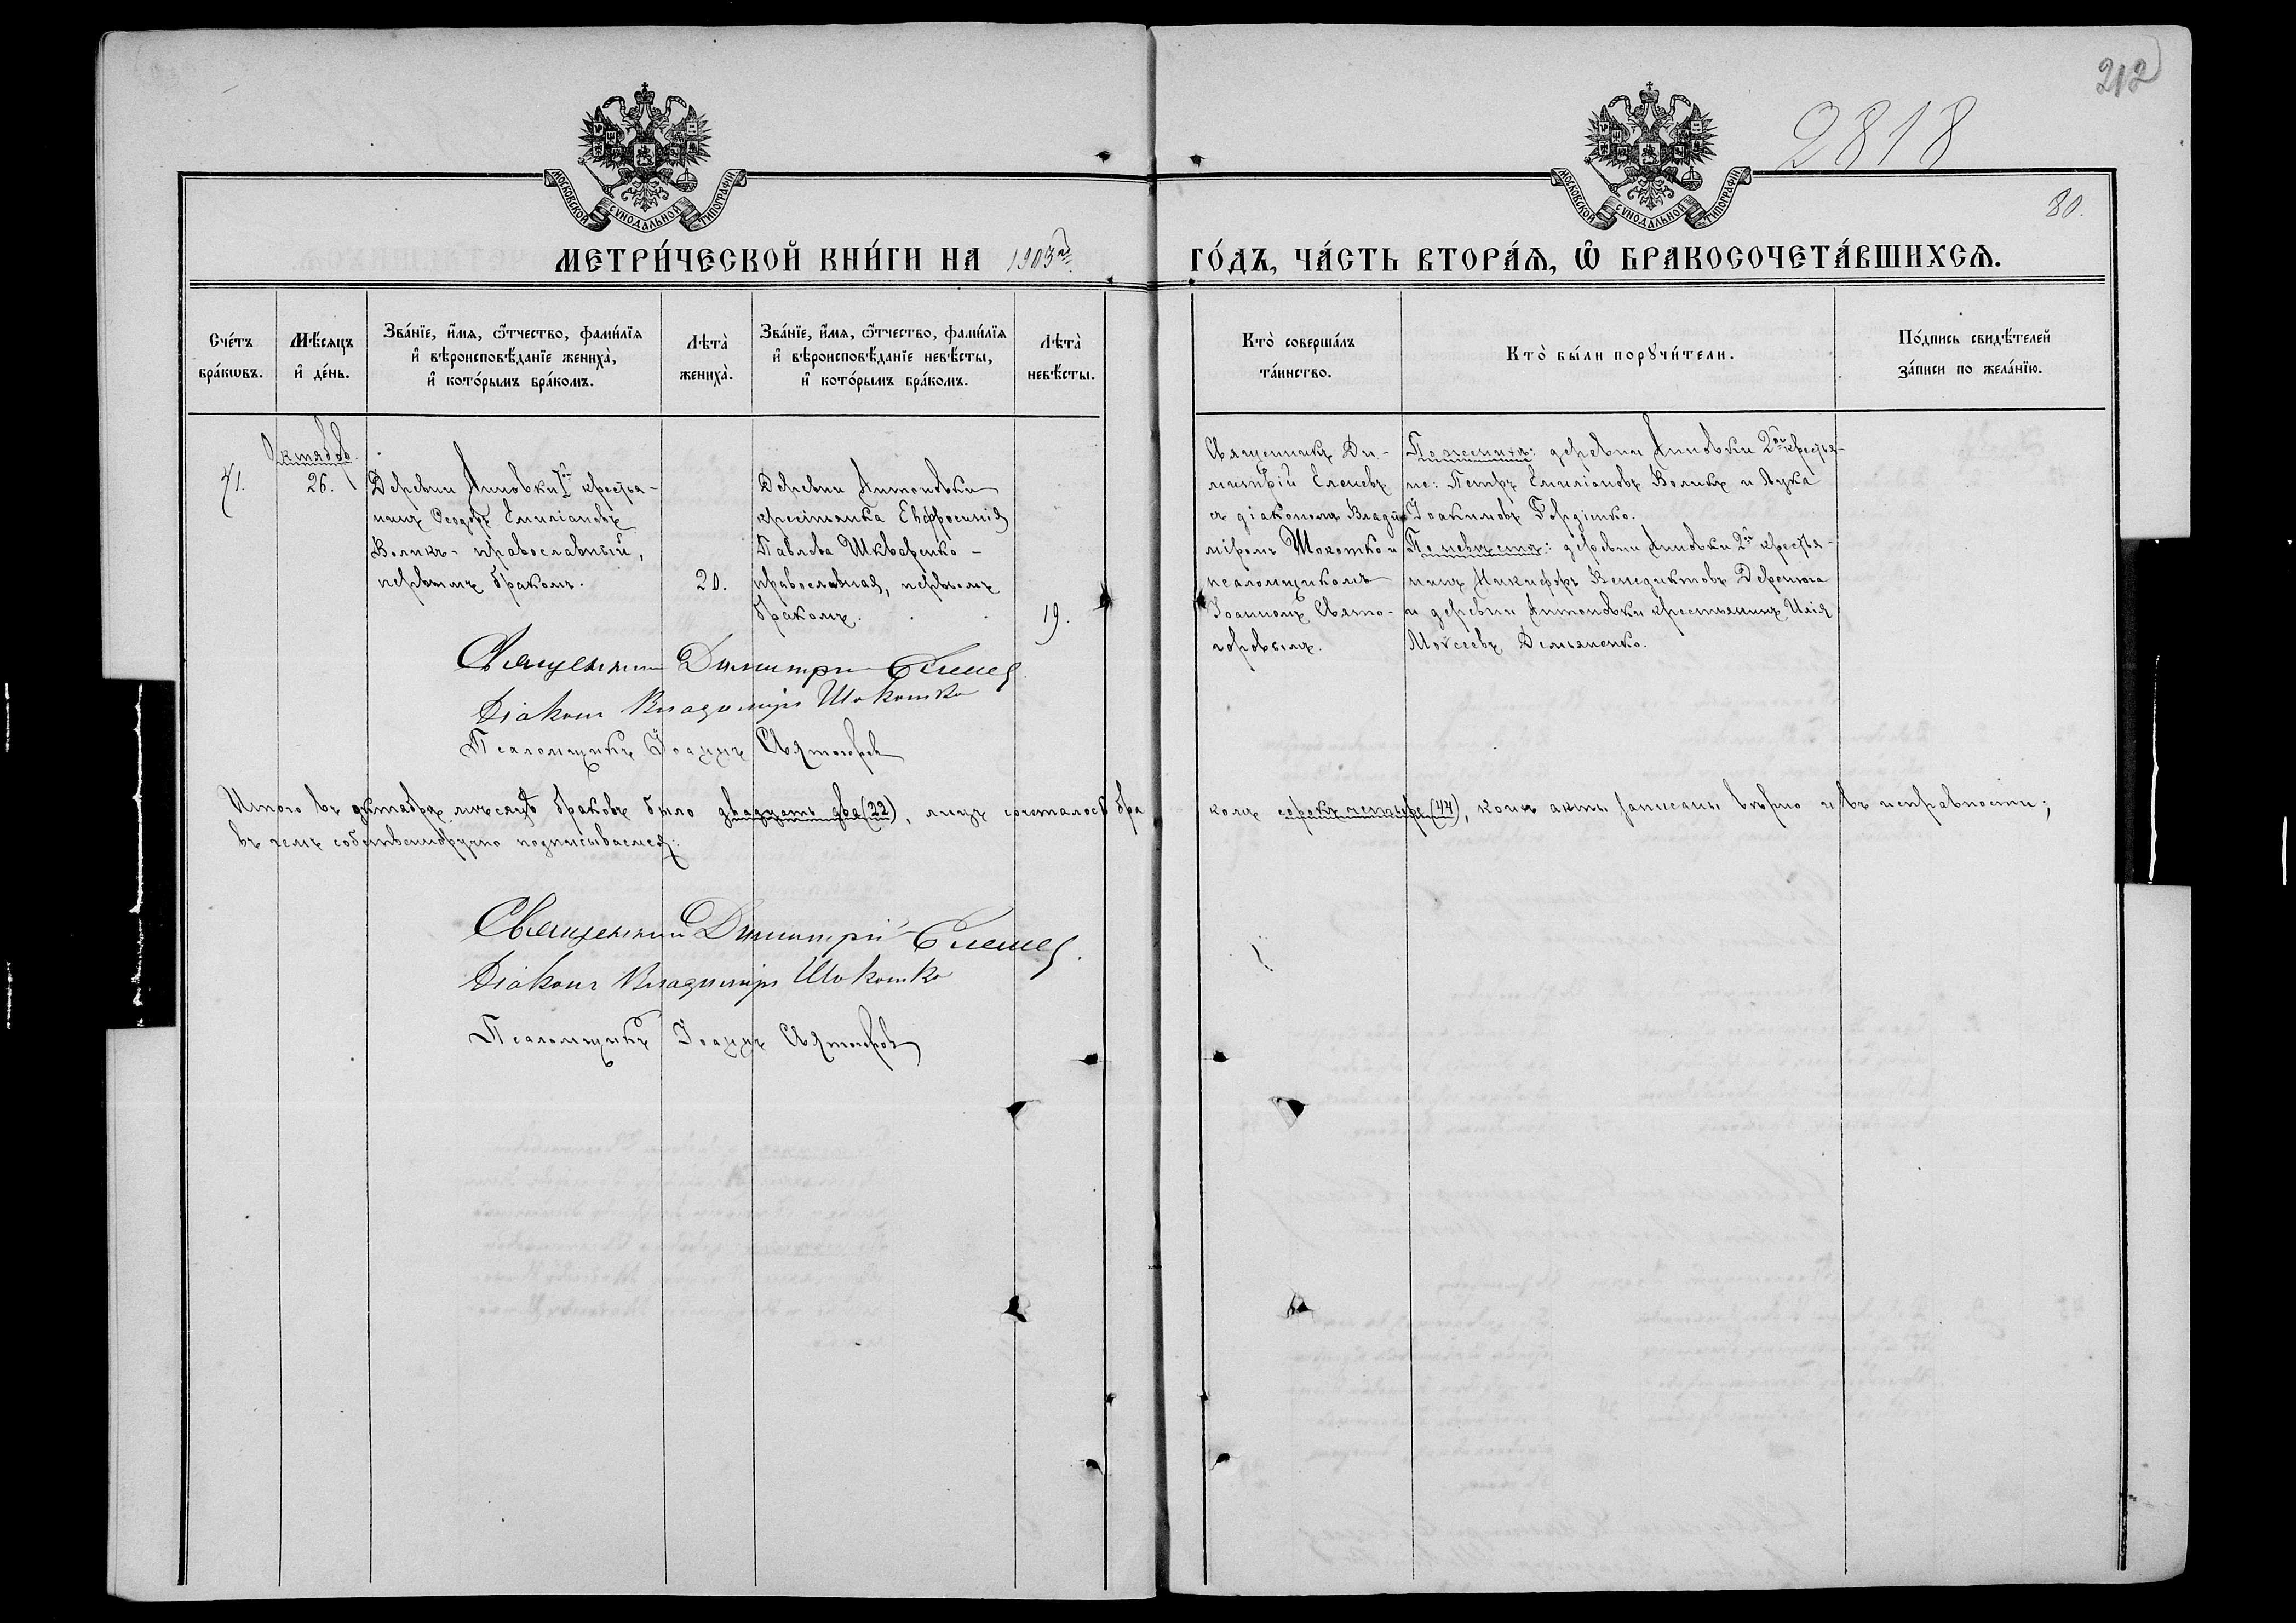 212
2818
80.
МОСКОВСКОЙ СѴНОДАЛЬНОЙ ТИПОГРАФІИ
МОСКОВСКОЙ СѴНОДАЛЬНОЙ ТИПОГРАФІИ
МЕТРИ́ЧЕСКОЙ КНИ́ГИ НА 1903й ГО́ДЪ, ЧА́СТЬ ВТОРА́Ѧ, Ѽ БРАКОСОЧЕТА́ВШИХСѦ.
Сче́тъ
бра́кѡвъ.
Мѣ́сяцъ
и҆ де́нь.
Зва́нїе, и҆́мѧ, ѻ҆́тчество, фами́лїѧ
и҆ вѣроисповѣ́данїе жениха̀,
и҆ кото́рымъ бра́комъ.
Лѣта̀
жениха̀.
Зва́нїе, и҆́мѧ, ѻ҆́тчество, фами́лїѧ
и҆ вѣроисповѣ́данїе невѣ́сты,
и҆ кото́рымъ бра́комъ.
Лѣта̀
невѣ́сты.
Кто̀ соверша́лъ
та́инство.
Кто̀ бы́ли порꙋчи́тели.
По́дпись свидѣ́телей
за́писи по жела́нїю.
41.
Октябрь.
26.
Деревни Липовки 1й крестья-
нинъ Ѳеодоръ Емиліановъ
Воликъ - православный,
первымъ бракомъ.
20.
Деревни Антоновки
крестьянка Евфросинія
Павлова Шкваренко -
православная, первымъ
бракомъ.
19.
Священникъ Ди-
митрій Еленевъ
съ діакономъ Влади-
міромъ Шокотко и
псаломщикомъ
Іоанномъ Свято-
горовымъ.
По женихѣ: деревни Липовки 2й крестья-
не: Петръ Емиліановъ Воликъ и Лука
Іоакимовъ Гордіенко.
По невѣстѣ: деревни Липовки 2й крестья-
нинъ Никифоръ Венедиктовъ Дерешюга
и деревни Антоновки крестьянинъ Илія
Моѵсеевъ Демьяненко.
Священникъ Димитрій Еленев
Діаконъ Владиміръ Шокотко
Псаломщикъ Іоаннъ Святогоров
Итого въ октябрѣ мѣсяцѣ браковъ было двадцать два (22), лицъ сочеталось бра
комъ сорокъ четыре (44), коихъ акты записаны вѣрно и въ исправности;
въ чемъ собственноручно подписываемся:
Священникъ Димитрій Еленев.
Діаконъ Владиміръ Шокотко
Псаломщикъ Іоаннъ Святогоров